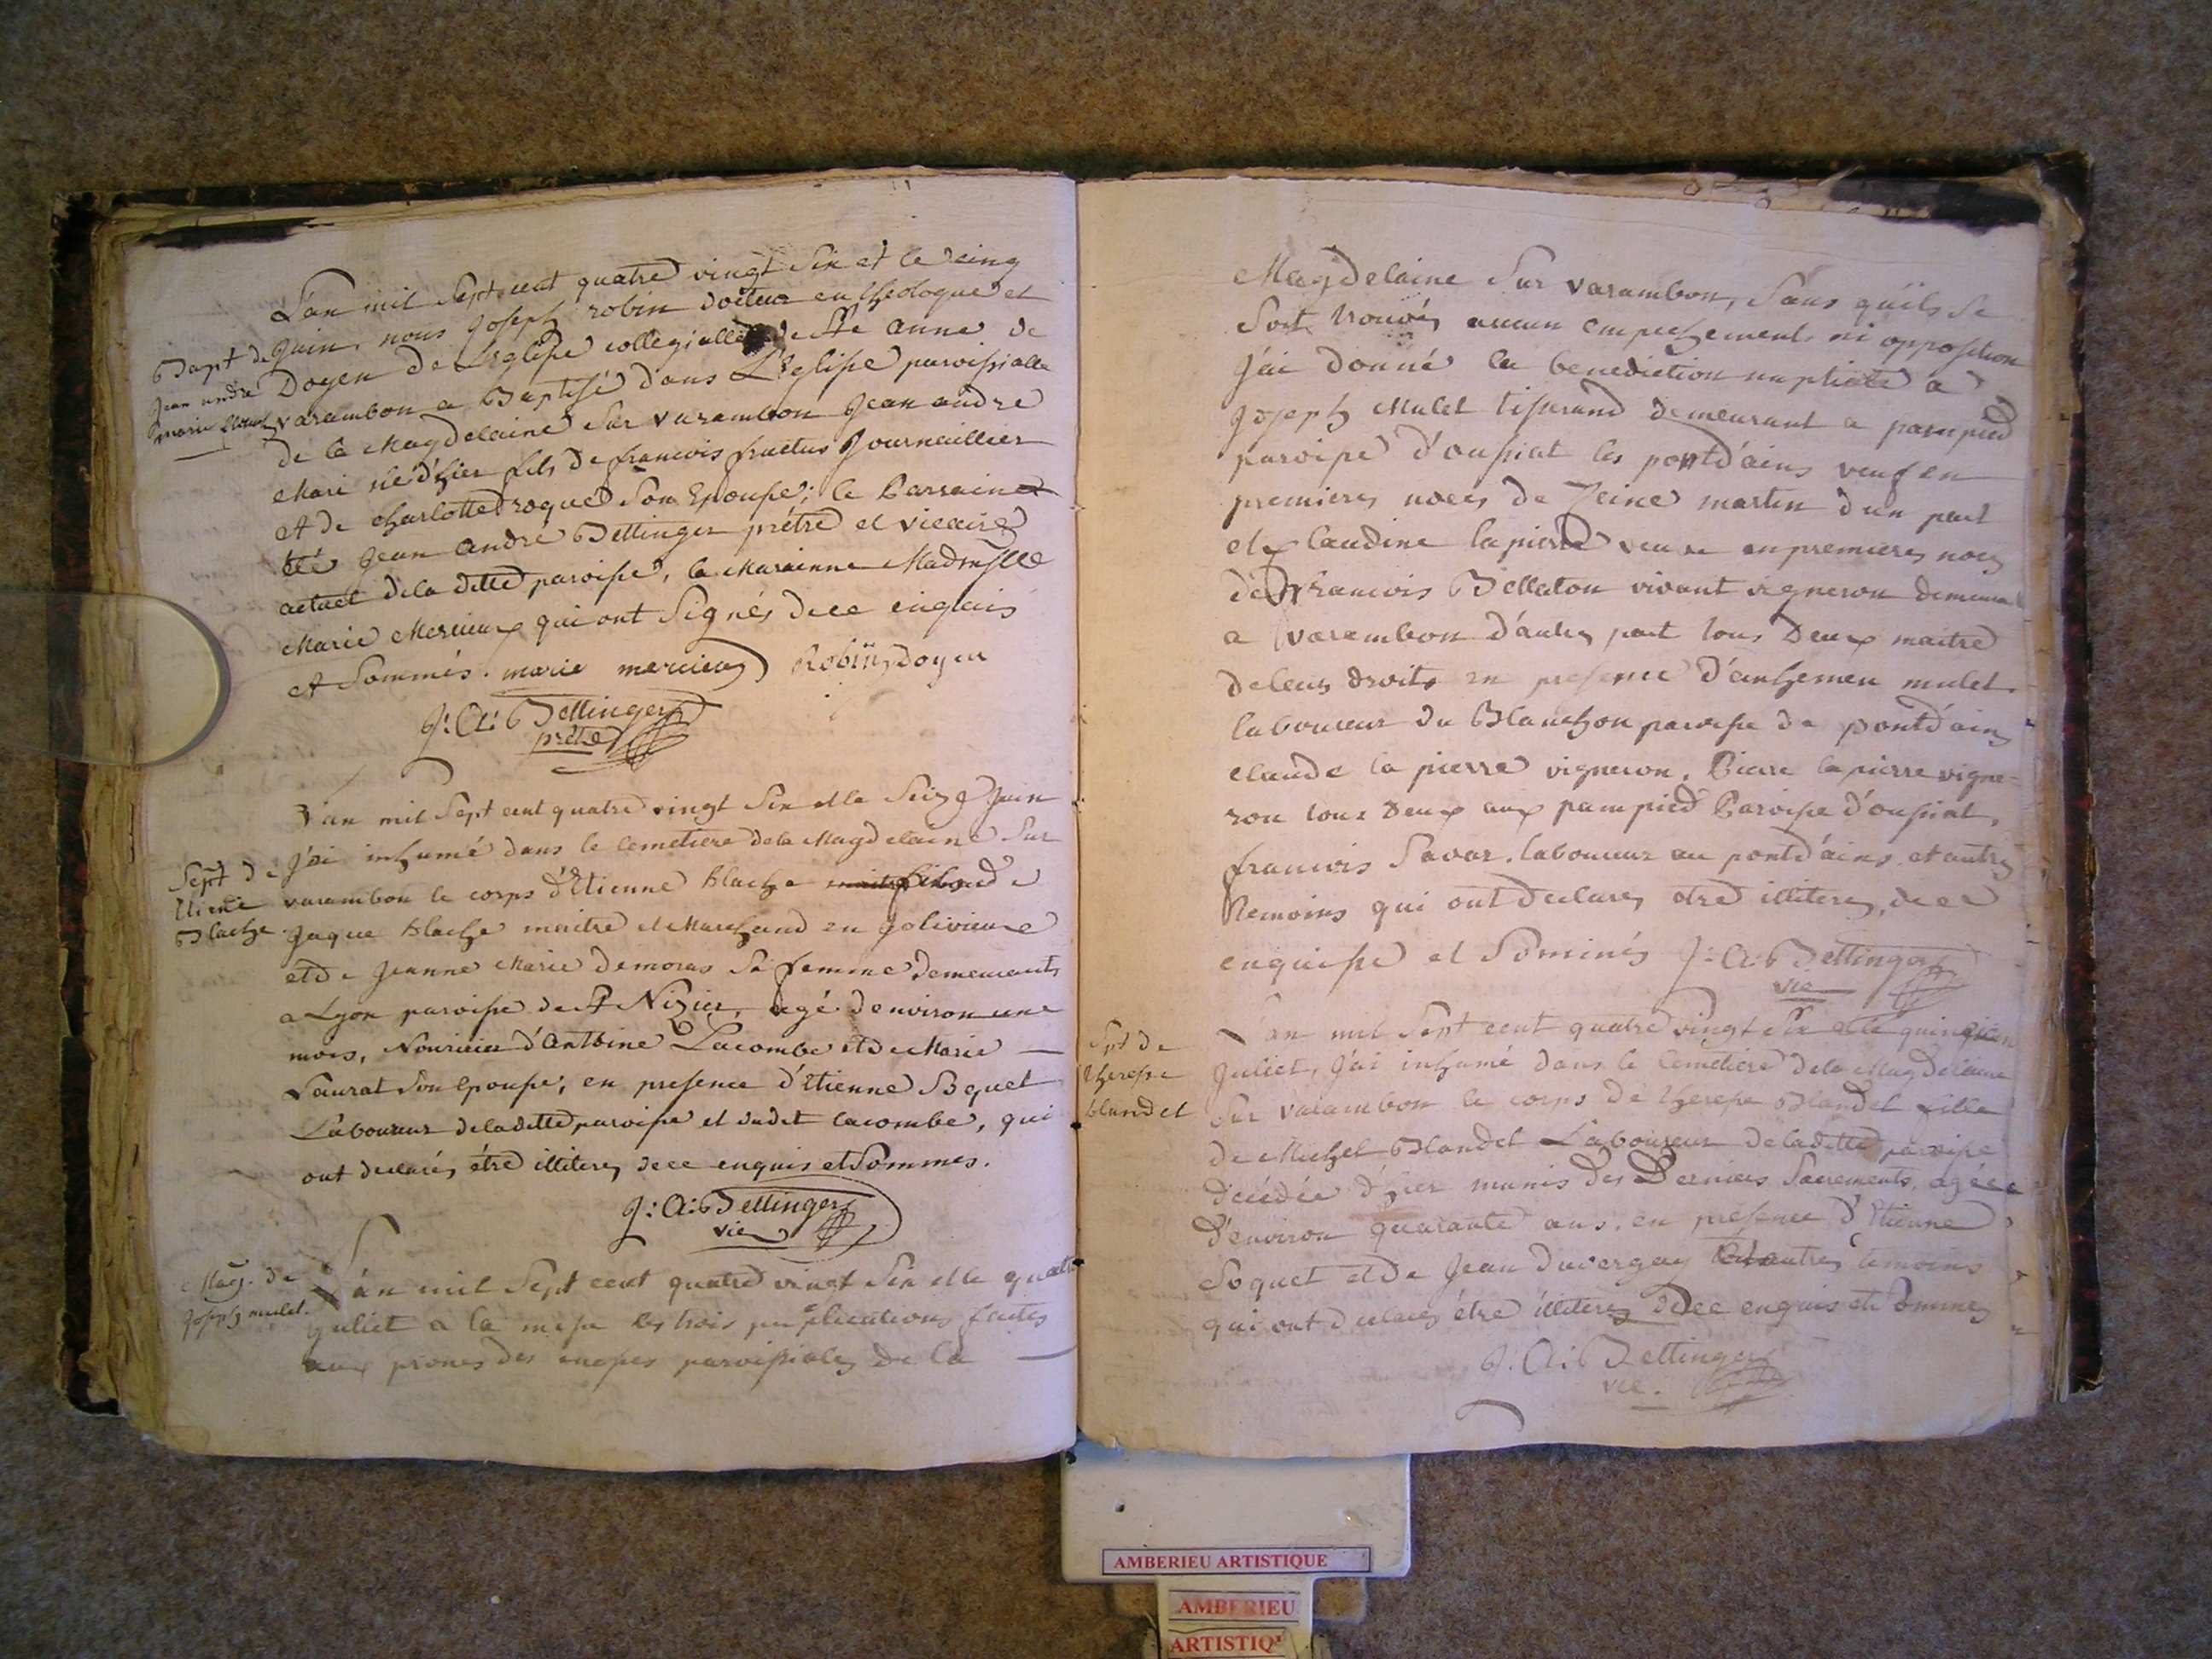 L'an mil Sept cent quatre vingt Six et le cinq
Bapt de
Jean andre
marie
Juin, nous Joseph robin docteur en theologue et
Doyen de L'eglise collegialle de Ste anne de
varambon a Baptisé dans L'eglise paroissialle
de la Magdelaine Sur varambon Jean andre
Mari né d'hier fils de francois fructus Journaillier
et de charlotte roque Son Epouse; le Parrain a
été Jean André Bettinger prétre et vicaire
actuel de la ditte paroisse, la Marainne Madmslle
Marie Mercieux qui ont Signés de ce enquis
et Sommés. marie mercieux Robin, doyen
J: A: Bettinger
prêtre
L'an mil Sept cent quatre vingt Six et le Seize Juin
Sept de
Etiene
Blache.
J'ai inhumé dans le Cemetiere de la Magdelaine Sur
varambon le corps d'Etienne Blache fils de
Jaque Blache maitre et Marchand en
et de Jeanne Marie demoras Sa femme demeurants
a Lyon paroisse de St Nizier, agé d'environ une
mois, Nouricier d'Antoine Lacombe et de Marie
Laurat Son epouse; en presence d'Etienne Soquet
Laboureur de la ditte paroisse et dudit lacombe, qui
ont declarés étre illiteres de ce enquis et Sommes.
J: A: Bettinger
vic
Mag. de
Joseph mulet.
L'an mil Sept cent quatre vingt Six et le quatre
Juliet a la messe les trois publications faites
aux prones des messes paroissiales de la
Magdelaine Sur varambon, Sans quils Se
Soit trouvés aucun empechement ni opposition
J'ai donné la benediction nuptiale a
Joseph Mulet tisserand demeurant a pampied
paroisse d'oussiat les pont d'ains veuf en
premieres noces de Reine martin d'un part
et claudine la pierre veuve en premieres noces
de francois Bellaton vivant vigneron demeurant
a varembon d'autre part tous Deux maitre
de leurs droits en presence d'anthemeu mulet
laboureur du Blanchon paroisse de pont d'ains
claude la pierre vigneron, Piere la pierre vigne-
ron tous deux aux pampied Paroisse d'oussiat,
francois Savar, laboureur au pont d'ains, et autres
temoins qui ont declares etre illiteres, de ce
enquisse et Sommés J: A: Bettinger
vic
Spt de
therese
blandet
L'an mil Sept cent quatre vingt Six et le quinzieme
Juliet, J'ai inhumé dans le Cemetiere de la Magdelaine
Sur varambon le corps de therese Blandet fille
de Michel Blandet Laboureur de laditte paroisse
décédée d'hier munis des Derniers Sacrements, agée
d'environ quarante ans, en presence d'Etienne
Soquet et de Jean duvergey et autres temoins
qui ont declarés étre illiteres de ce enquis et Sommes
J: A: Bettinger
vic.
AMBERIEU ARTISTIQUE
AMBERIEU
ARTISTIQ